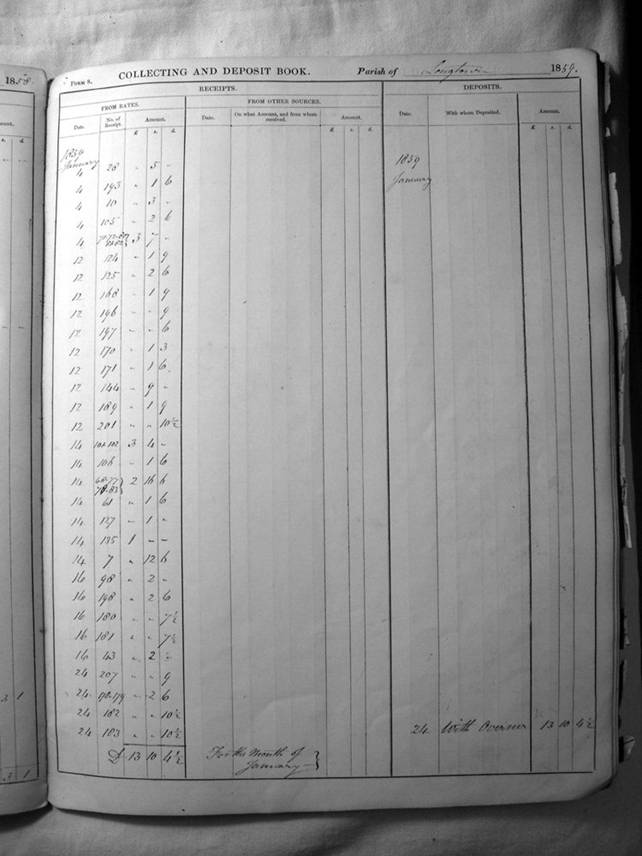 1858.
Form 8. COLLECTING AND DEPOSIT BOOK. Parish of Longtown 1859.
RECEIPTS. DEPOSITS.
FROM RATES. FROM OTHER SOURCES.
Date. No. of Receipt. Amount. Date. On what Account, and from whom received. Amount. Date. With whom Deposited. Amount.
£ s. d. £ s. d. £ s. d.
1859 1859
January January
4 28 " 5 -
4 193 " 1 6
4 10 " 3 -
4 105 " 2 6
4 3 7 -
12 124 " 1 9
12 125 " 2 6
12 168 " 1 9
12 196 " " 9
12 197 " " 6
12 170 " 1 3
12 171 " 1 6
12 144 " 9 -
12 189 " 1 9
12 201 " " 10½
14 101-102 3 4 -
14 106 " 1 6
14 68-77 2 16 6
78-83
14 61 " 1 6
14 127 " 1 -
14 135 1 - -
14 7 " 12 6
16 98 " 2 -
16 198 " 2 6
16 180 " " 7½
16 181 " " 7½
16 43 " 2 -
24 207 " " 9
24 178-179 " 2 6
24 182 " " 10½
24 183 " " 10½ 24 With Overseer 13 10 4½
£ 13 10 4½ For the Month of
January
3 1
3 1